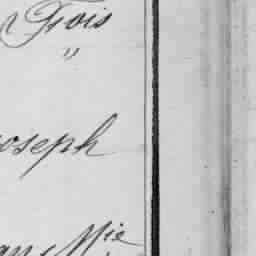 Fois
"
oseph
Mie